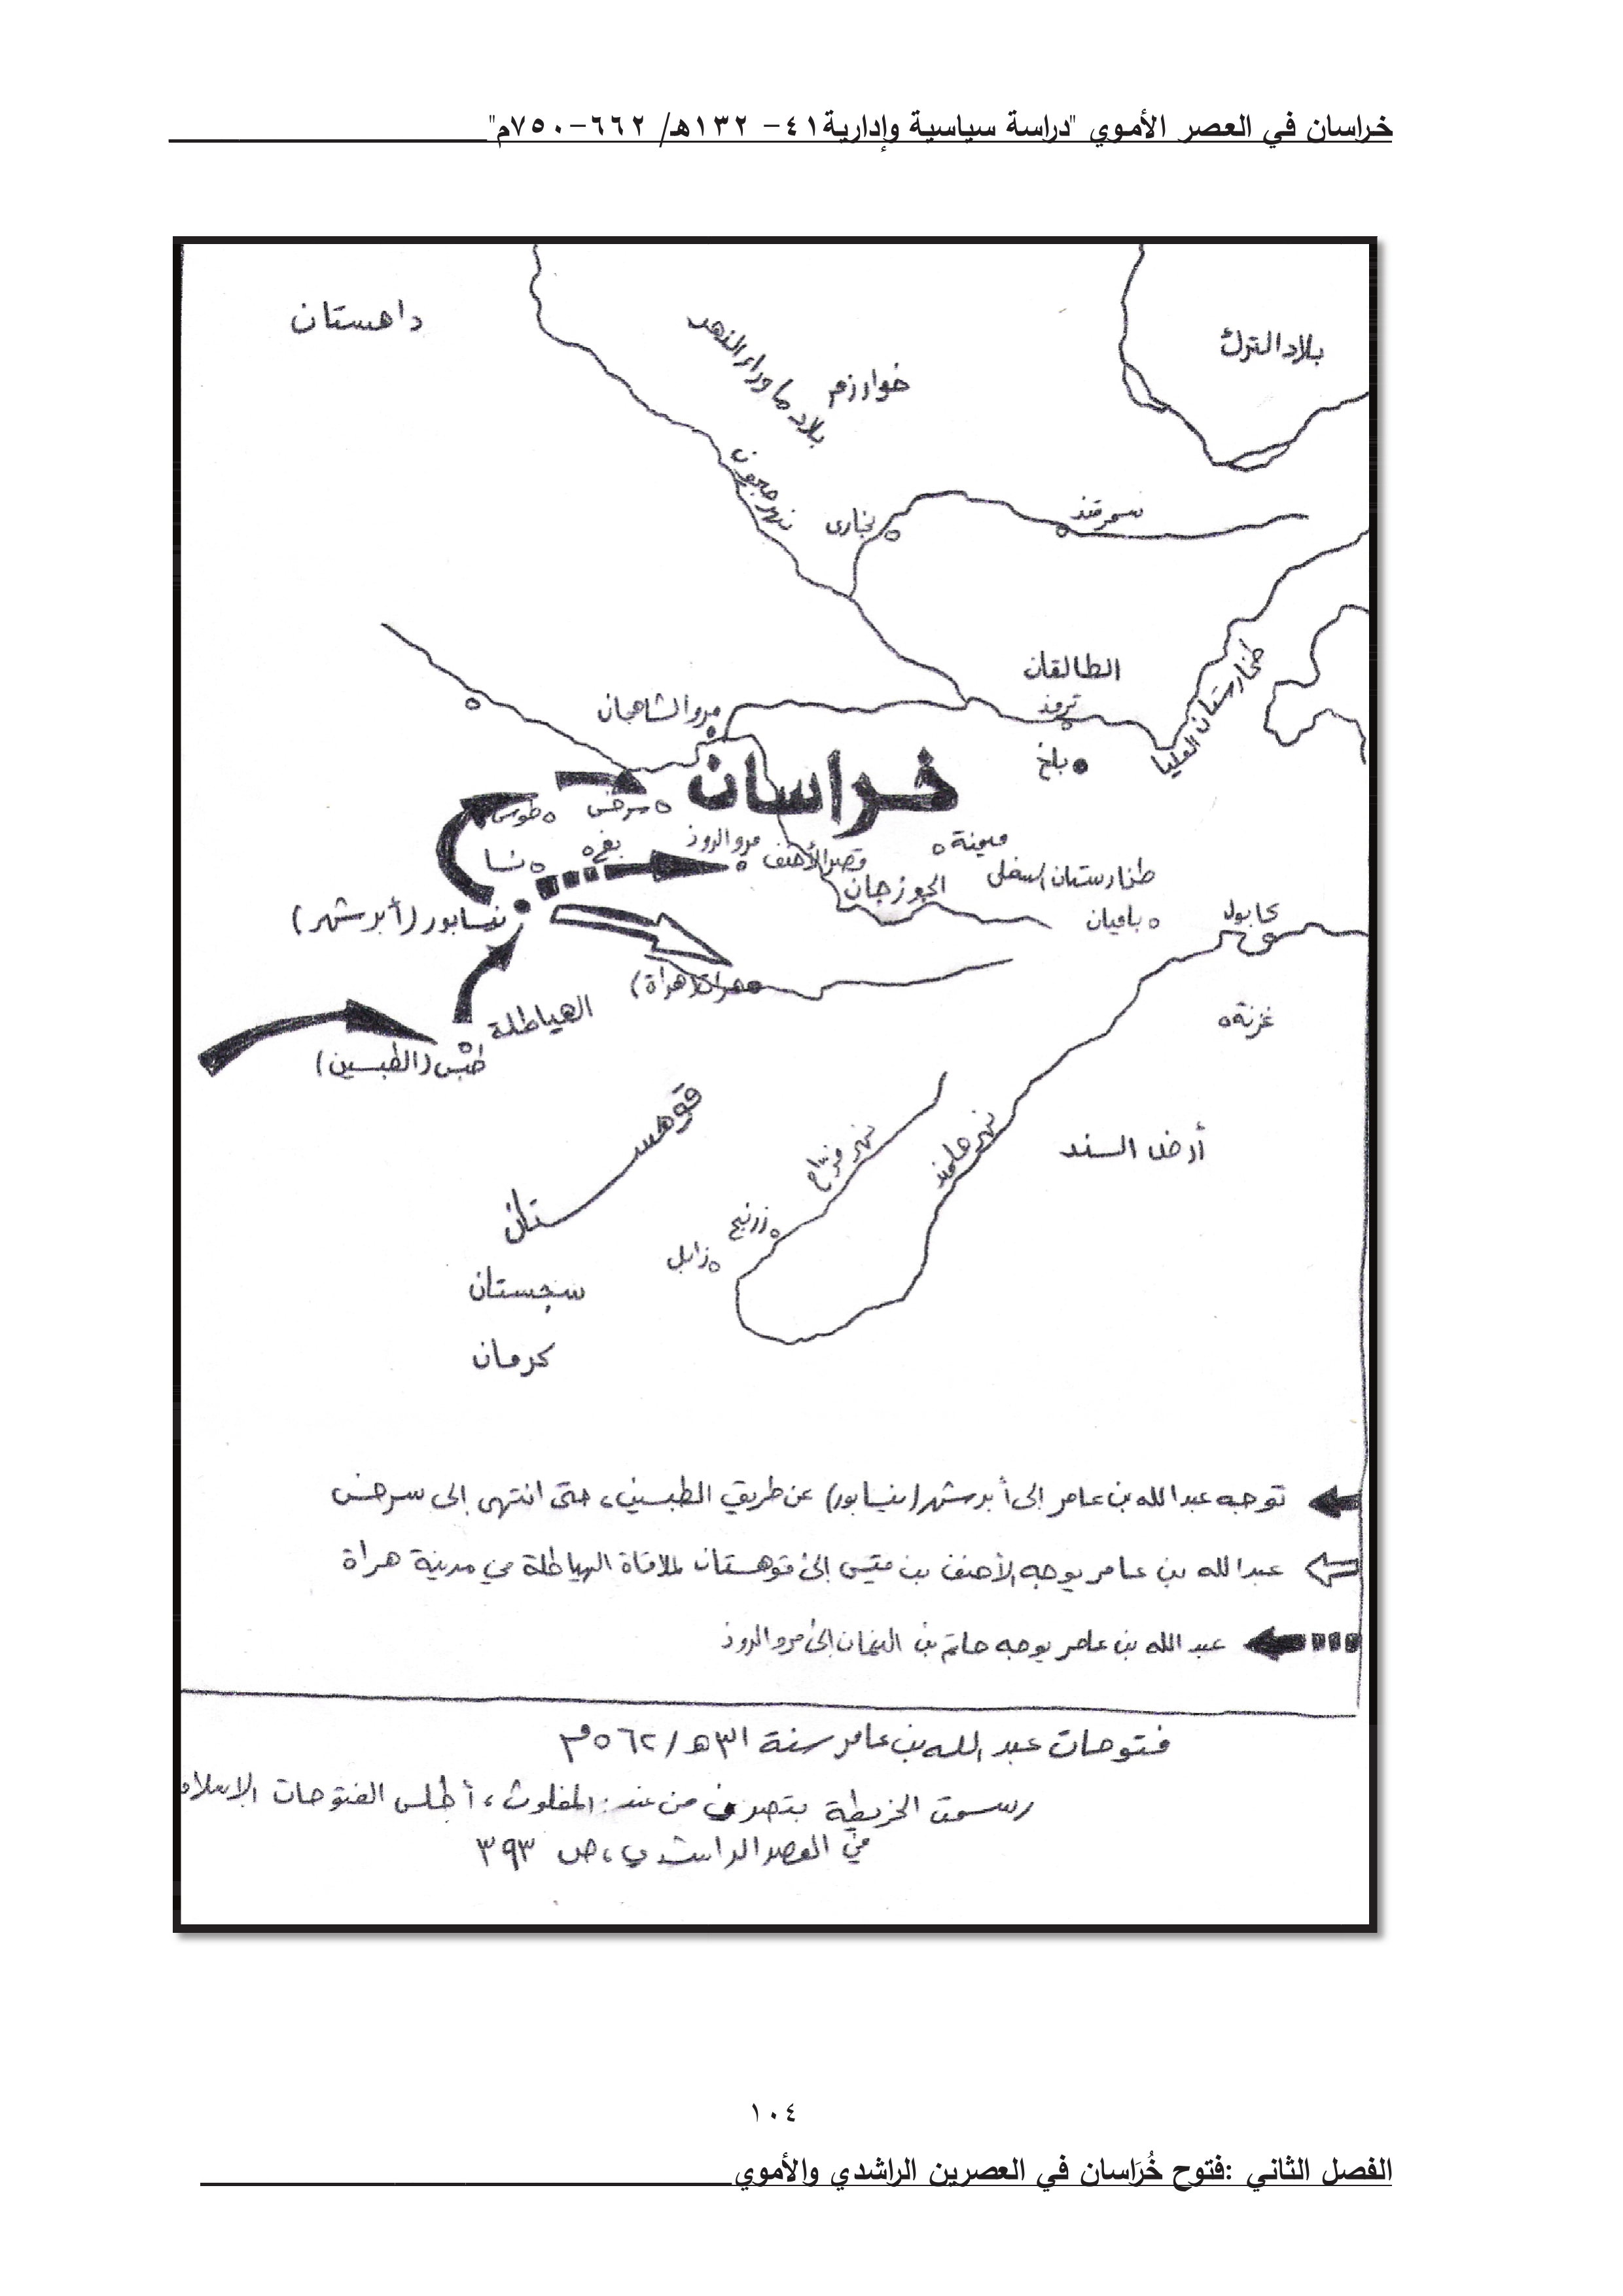 خراسان في العصر الأموي "دراسة سياسية وإدارية٤١- ١٣٢هـ/ ٦٦٢-٧٥٠م"
داهستان
بلاد ما وراء النهر
خوارزم
بلاد الترك
نهر جيحون
بخارى
سمرقند
الطالقان
ترمذ
طخارستان العليا
مرو الشاهجان
بلخ
خراسان
طوس
سرخس
نسا
بغ
مرو الروذ
قصر الأحنف
ميمنة
الجوزجان
طخارستان السفلى
باميان
كابول
نيسابور (أبر شهر)
هراة (هراة)
الهياطلة
غزنة
طبس (الطبسين)
قوهستان
نهر
نهر هلمند
أرض السند
زرنج
زابل
سجستان
كرمان
توجه عبد الله بن عامر إلى أبر شهر (نيسابور) عن طريق الطبسين، حتى انتهى إلى سرخس
عبد الله بن عامر يوجه الأحنف بن قيس إلى قوهستان لملاقاة الهياطلة في مدينة هراة
عبد الله بن عامر يوجه حاتم بن النعمان إلى مرو الروذ
فتوحات عبد الله بن عامر سنة ٣١هـ / ٥٦٢م
رسمت الخريطة بتصرف من عند: المغلوث، أطلس الفتوحات الإسلام
في العصر الراشدي، ص ٣٩٣
١٠٤
الفصل الثاني :فتوح خُرَاسان في العصرين الراشدي والأموي